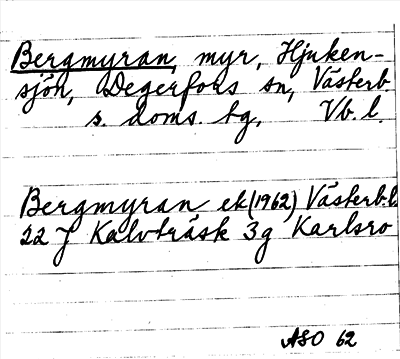 Bergmyran, myr, Hjuken-
sjön, Degerfors sn, Västerb.
s. doms. tg, Vb. l.
Bergmyran ek (1962) Västerb. l.
22 J Kalvträsk 3g Karlsro
ASO 62